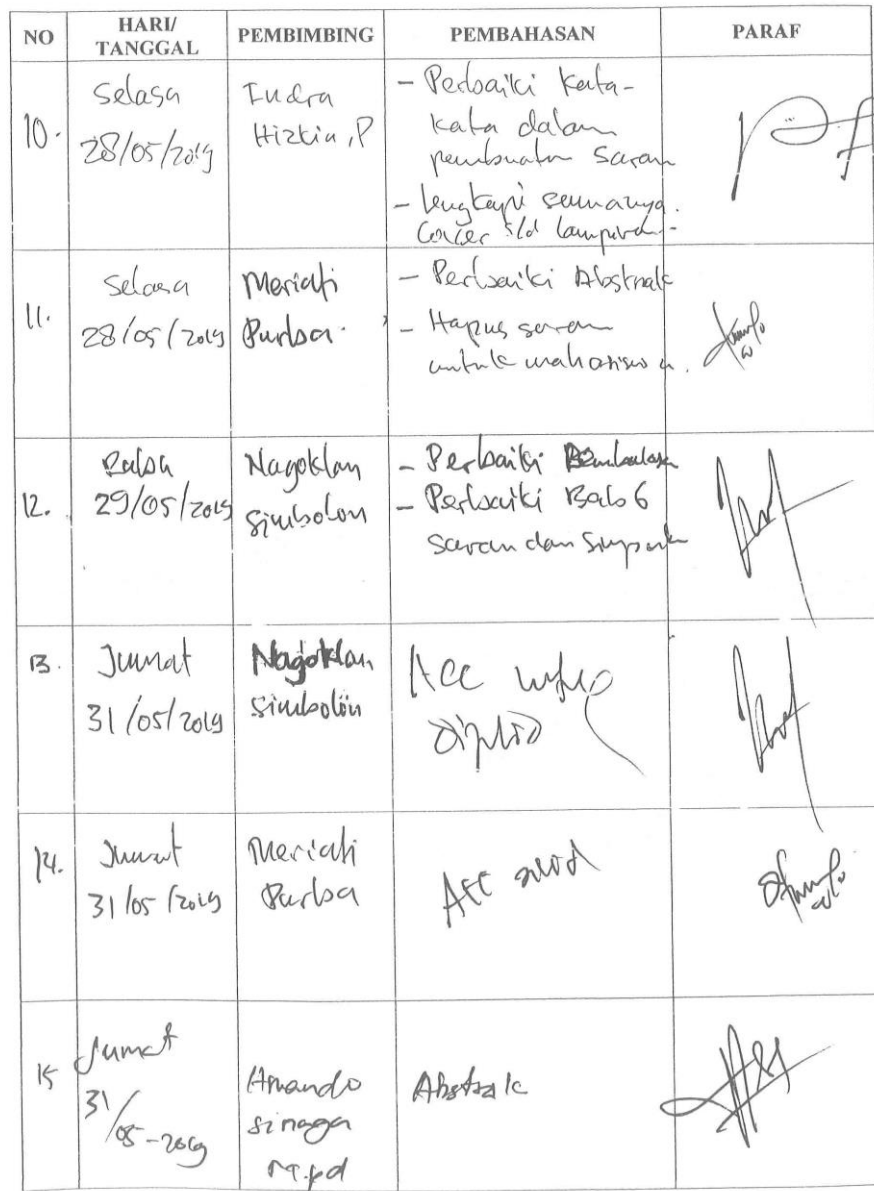 NO
HARI/
TANGGAL
PEMBIMBING
PEMBAHASAN
PARAF
10.
Selasa
28/05/2019
Indra
Hizkia, P
- Perbaiki kata-
kata dalam
pembuatan saran
- Lengkapi semuanya.
Cover s/d lampiran
11.
Selasa
28/05/2019
Meriati
Purba
- Perbaiki Abstrak
- Hapus saran
untuk mahasiswa.
12.
Rabu
29/05/2019
Nagoklan
Simbolon
- Perbaiki
- Perbaiki Bab 6
saran dan
13.
Jumat
31/05/2019
Nagoklan
Simbolon
ACC
14.
Jumat
31/05/2019
Meriati
Purba
Acc
15
Jumat
31/05-2019
Amando
sinaga
M.pd
Abstrak